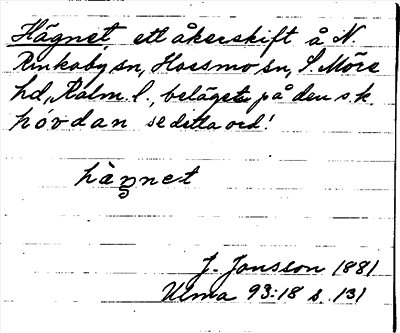 Hägnet ett åkerskift å N
Rinkaby sn, Hossmo sn, S. Möre
hd, Kalm. l., beläget på den s.k.
hovdan se detta ord!
hàŋnet
J. Jonsson 1881
Ulma 93:18 s. 131